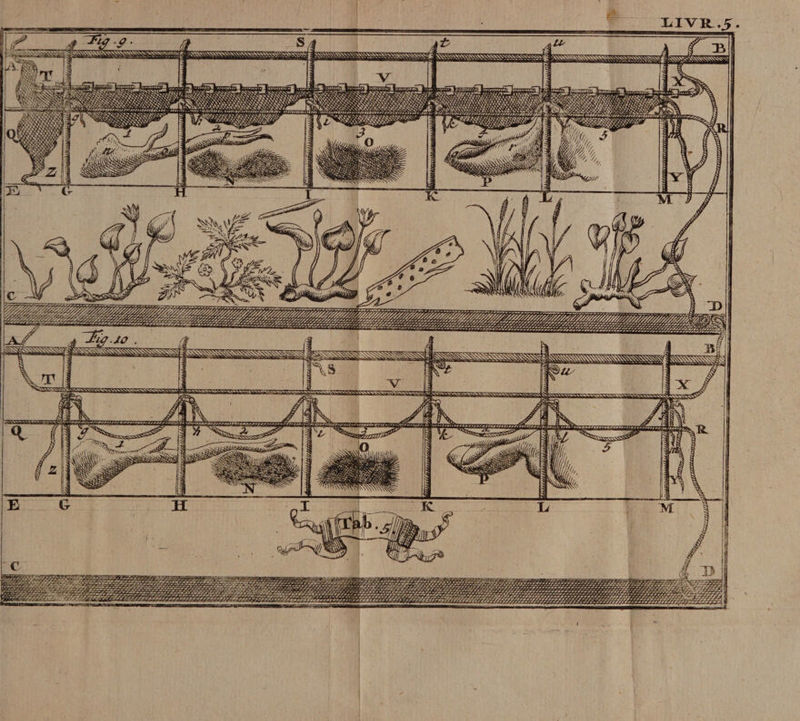 LIVR. 5.
Fig. 9. S t u B
A T V X
g 1 h 2 i 3 k 4 l 5 m R
Q n o p O q r
Z N P Y
E G H I K L M
C D
A Fig. 10. B
S t u
T V X
Q g 1 h 2 i 3 k 4 l 5 R
O
Z N P Y
E G H I K L M
Tab. 5.
C D